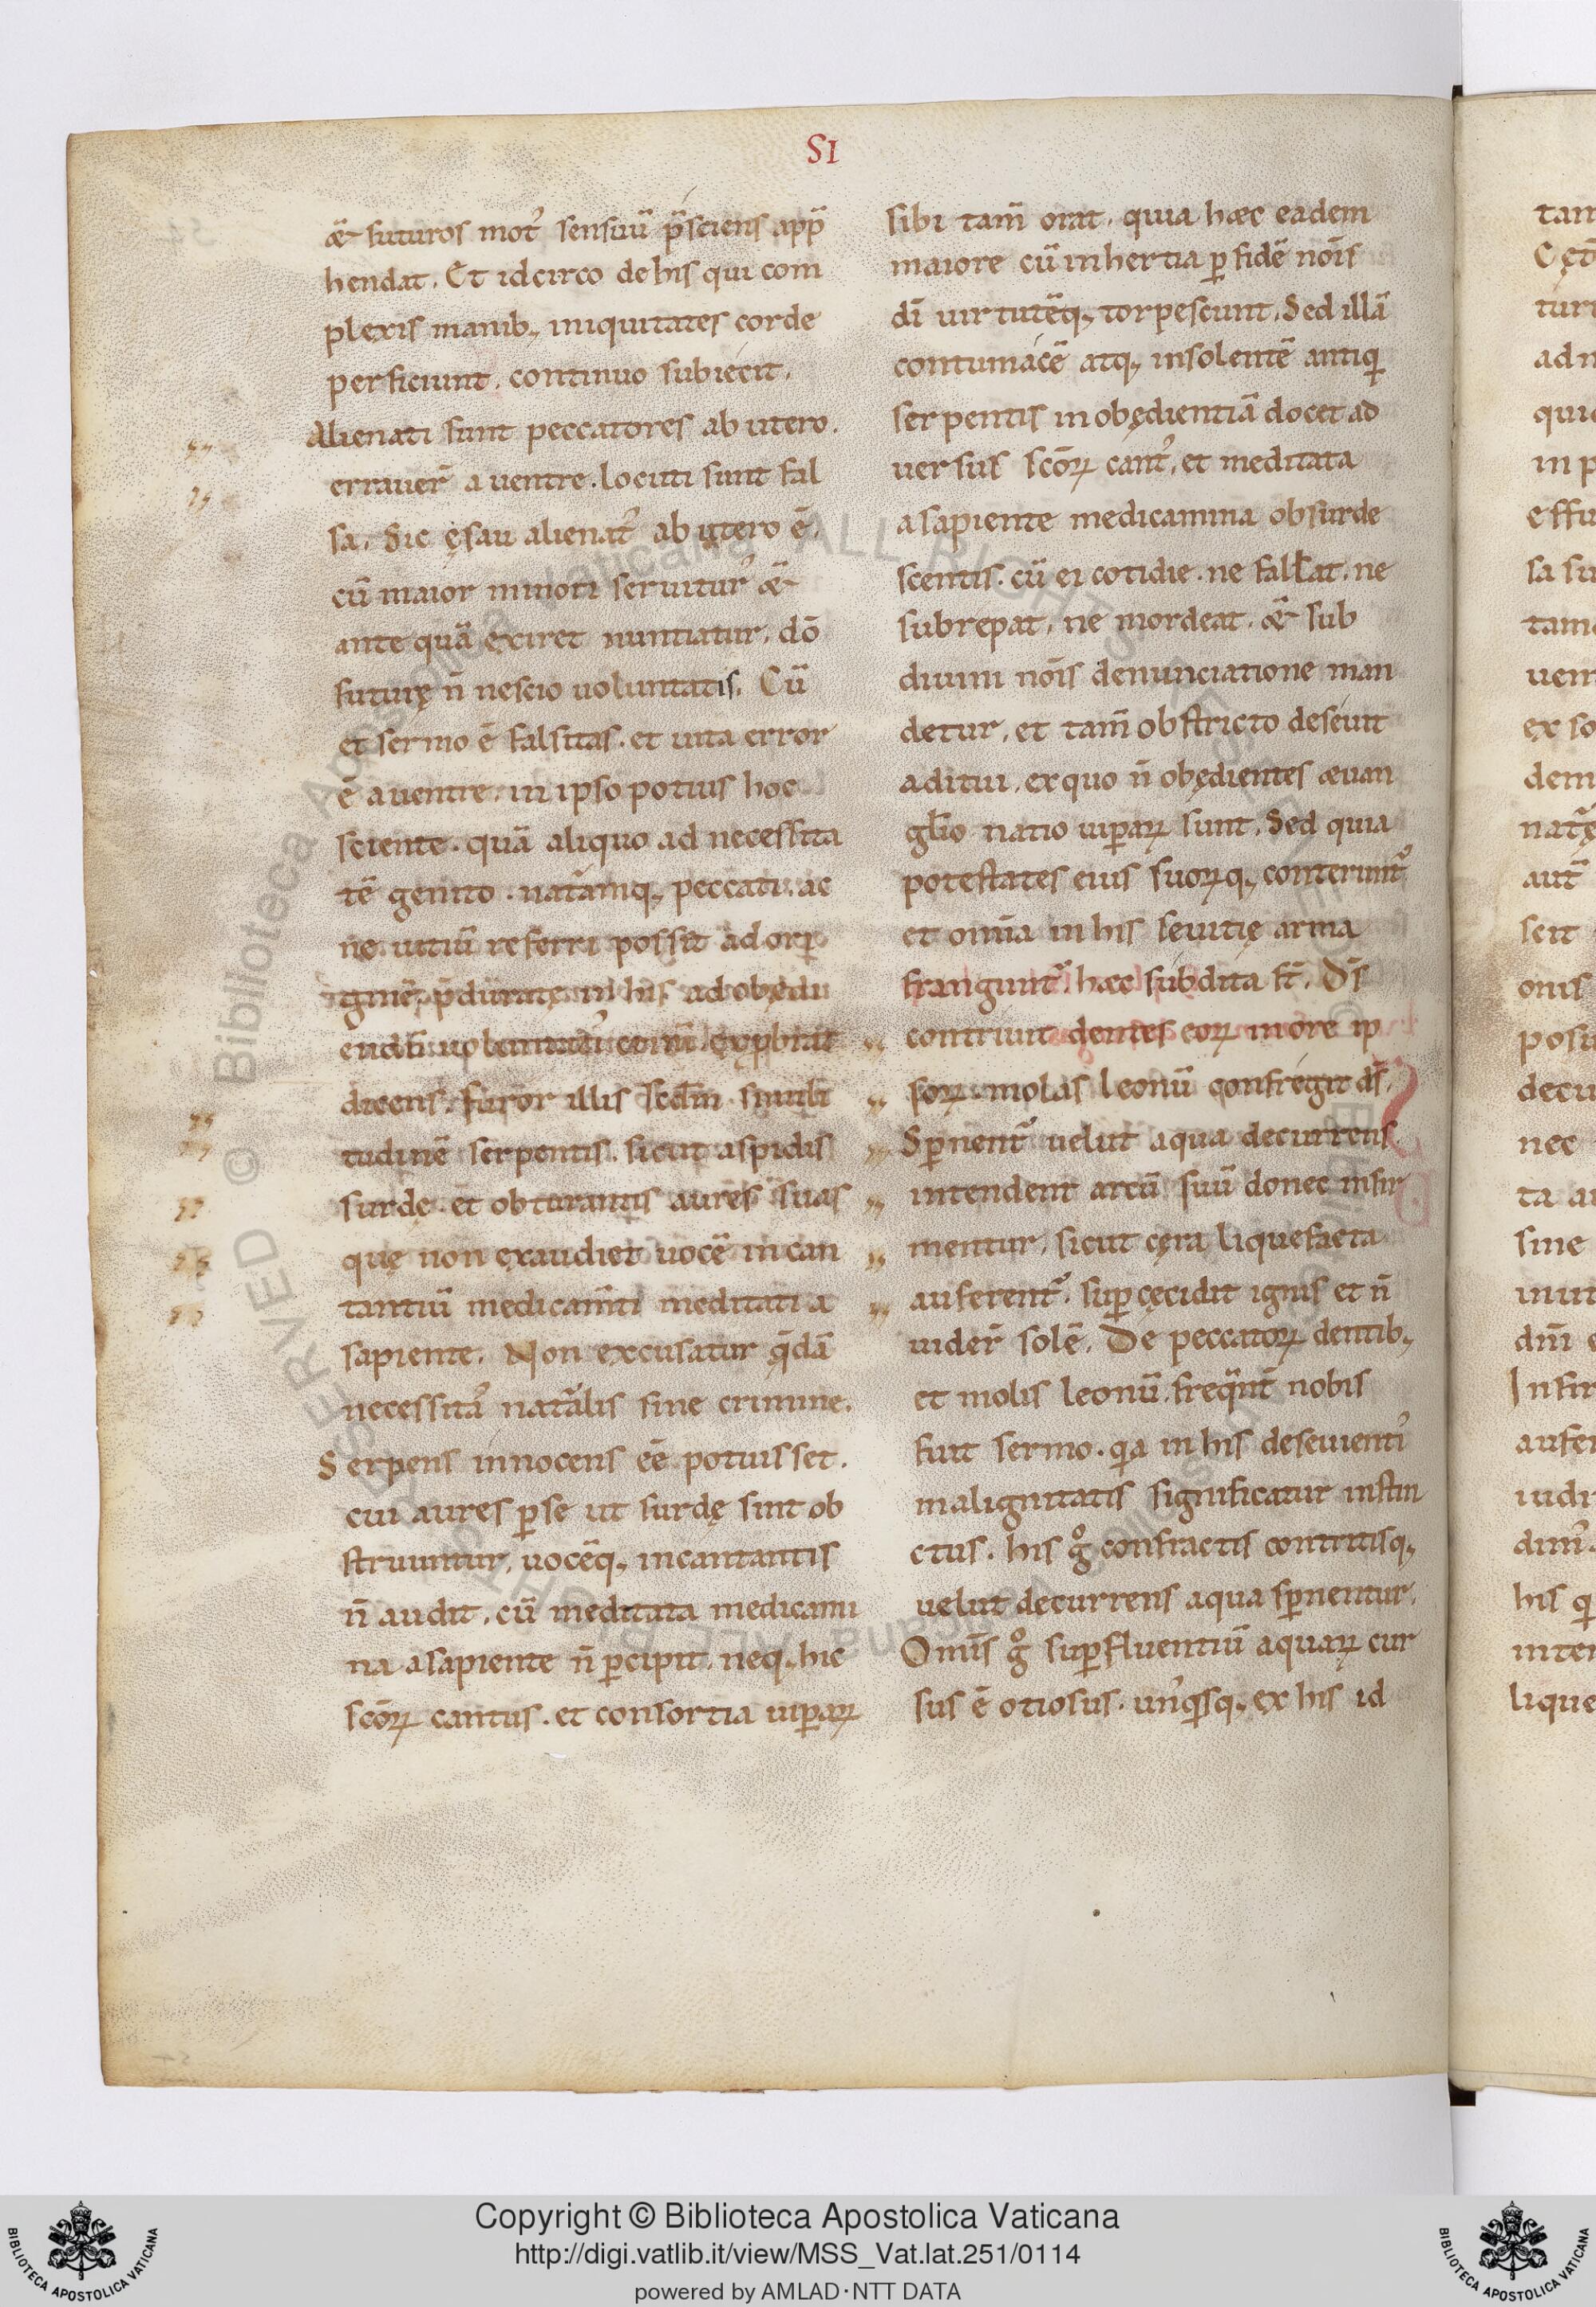 SI
& futuros mot᾽ sensuū p̄sciens app̄
hendat. Et idcirco de his qui com
plexis manib; iniquitates corde
perficiunt. continuo subiecit.
Alienati sunt peccatores ab utero.
errauer̄ a uentre. locuti sunt fal
sa. Sic ęsau alienat᾽ ab utero ē.
cū maior minori seruitur᾽ &
ante quā exiret nuntiatur. dō
futurę n̄ nescio uoluntatis. Cū
et sermo ē falsitas. et uita error
ē a uentre. in ipso potius hoc
sciente. quā aliquo ad necessita
tē genito. naturāmq; peccati. ac
ne uitiū referri possit ad or
iginē.
dicens. furor illis scdm̄ simili
tudinē serpentis. sicut aspidis
surdę. et obturantis aures suas
quę non exaudiet uocē incan
tantiū medicam̄ti meditati a
sapiente. Non excusatur q̄dā
necessita᾽ natalis sine crimine.
Serpens innocens eē potuisset.
cui aures ꝑ se ut surdę sint ob
struuntur. uocēq; incantantis
n̄ audit. cū meditata medicami
na a sapiente n̄ ꝑcipit. neq; hic
scōꝝ cantus. et consortia uiꝑaꝝ
sibi tam̄ orat. quia hæc eadem
maiore cū inhertia ꝑ fidē nōis
dī uirtutēq; torpescunt. Sed illā
contumacē atq; insolentē antiqi
serpentis inobędientiā docet ad
uersus scōꝝ cant᾽. et meditata
a sapiente medicamina obsurde
scentis. cū ei cotidie. ne fallat. ne
subrepat. ne mordeat. & sub
diuini nōis denunciatione man
detur. et tam̄ obstricto deseuit
aditui. ex quo n̄ obędientes æuan
glīo natio uiꝑaꝝ sunt. Sed quia
potestates eius suoꝝq; conterunt᾽
et om̄ia in his seuitię arma
frangunt᾽. hæc subdita st̄. Ds̄
„ contriuit dentes eoꝝ in ore ip
„ soꝝ. molas leonū confregit ds̄.
„ Sꝑnent᾽ uelut aqua decurrens.
„ intendent arcū suū donec infir
„ mentur. sicut cęra liquefacta
„ auferent᾽. suꝑcęcidit ignis et n̄
uider̄ solē. De peccatoꝝ dentib;
et molis leonū. freq̄nt̄ nobis
fuit sermo. qia in his deseuienti᾽
malignitatis significatur instin
ctus. his gͦ confractis contritisq;
uelut decurrens aqua sꝑnentur.
Omīs gͦ suꝑfluentiū aquaꝝ cur
sus ē otiosus. un᾽qisq; ex his id
Copyright © Biblioteca Apostolica Vaticana
http://digi.vatlib.it/view/MSS_Vat.lat.251/0114
powered by AMLAD·NTT DATA